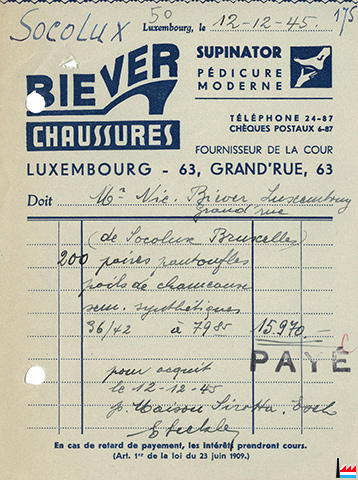 Socolux 50 175
Luxembourg, le 12-12-45.
BIEVER
CHAUSSURES
SUPINATOR
PÉDICURE
MODERNE
TÉLÉPHONE 24-87
CHÈQUES POSTAUX 6-87
FOURNISSEUR DE LA COUR
LUXEMBOURG - 63, GRAND'RUE, 63
Doit Mr Nic. Biever Luxembourg
Grand'rue
(de Socolux Bruxelles)
200 paires pantoufles
poils de chameaux
sem. synthétiques
36/42 à 7985 15.970.-
PAYÉ
pour acquit
le 12-12-45
p. Maison Sirotta. Esch
En cas de retard de payement, les intérêts prendront cours.
(Art. 1er de la loi du 23 juin 1909.)